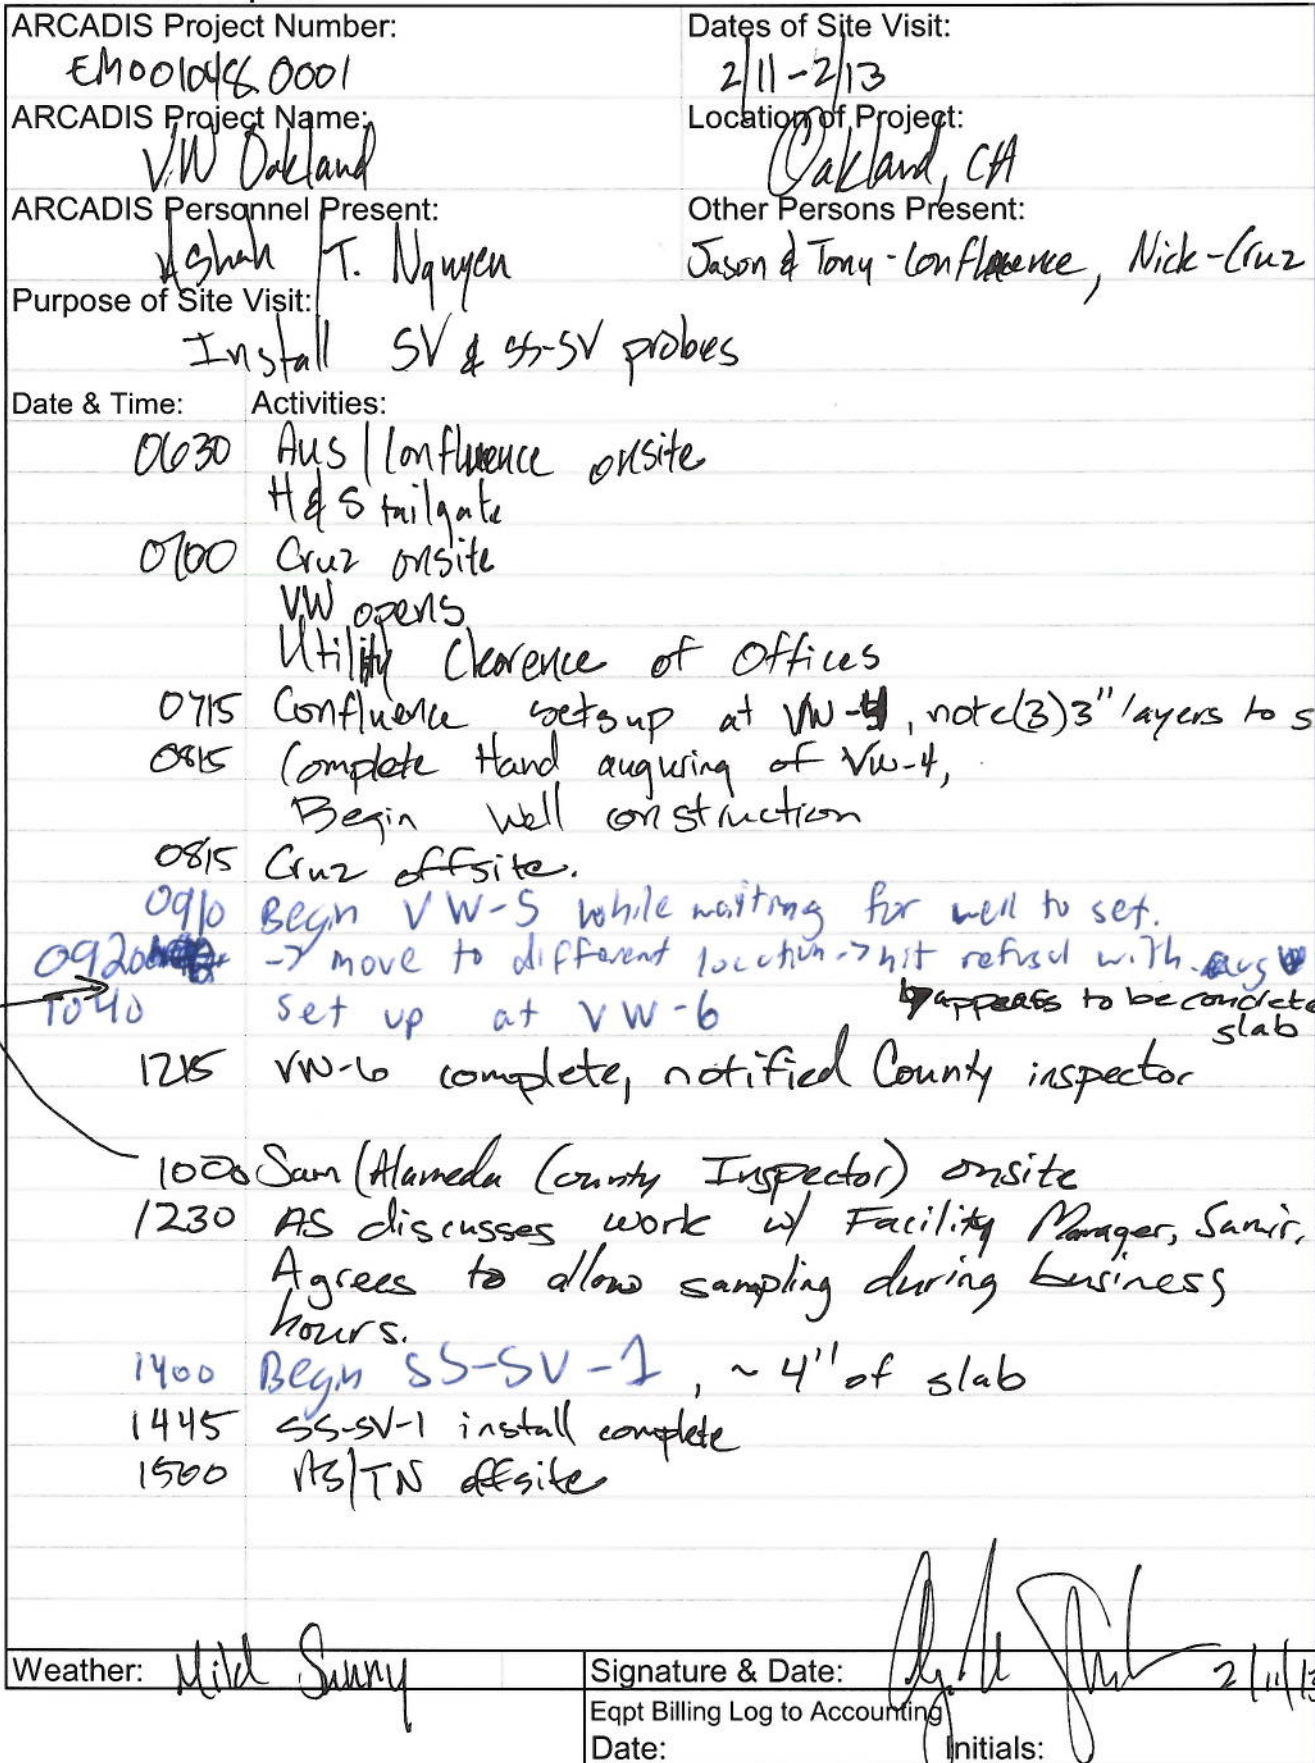 ARCADIS Project Number: Dates of Site Visit:
EM001048.0001 2/11-2/13
ARCADIS Project Name: Location of Project:
VW Oakland Oakland, CA
ARCADIS Personnel Present: Other Persons Present:
AShah / T. Nguyen Jason & Tony-Confluence, Nick-Cruz
Purpose of Site Visit:
Install SV & SS-SV probes
Date & Time: Activities:
0630 Aus / Confluence onsite
H & S tailgate
0700 Cruz onsite
VW opens
Utility Clearence of Offices
0715 Confluence sets up at VW-4, note (3) 3" layers to s
0815 Complete Hand auguring of VW-4,
Begin Well construction
0815 Cruz offsite.
0910 Begin VW-5 while waiting for well to set.
0920 -> move to different location -> hit refusal with aug
appears to be concrete
1040 set up at VW-6
slab
1215 VW-6 complete, notified County inspector
1000 Sam (Alameda County Inspector) onsite
1230 AS discusses work w/ Facility Manager, Samir.
Agrees to allow sampling during business
hours.
1400 Begin SS-SV-1, ~ 4" of slab
1445 SS-SV-1 install complete
1500 AS/TN offsite
Weather: Mild Sunny Signature & Date: 2/11/13
Eqpt Billing Log to Accounting
Date: Initials: